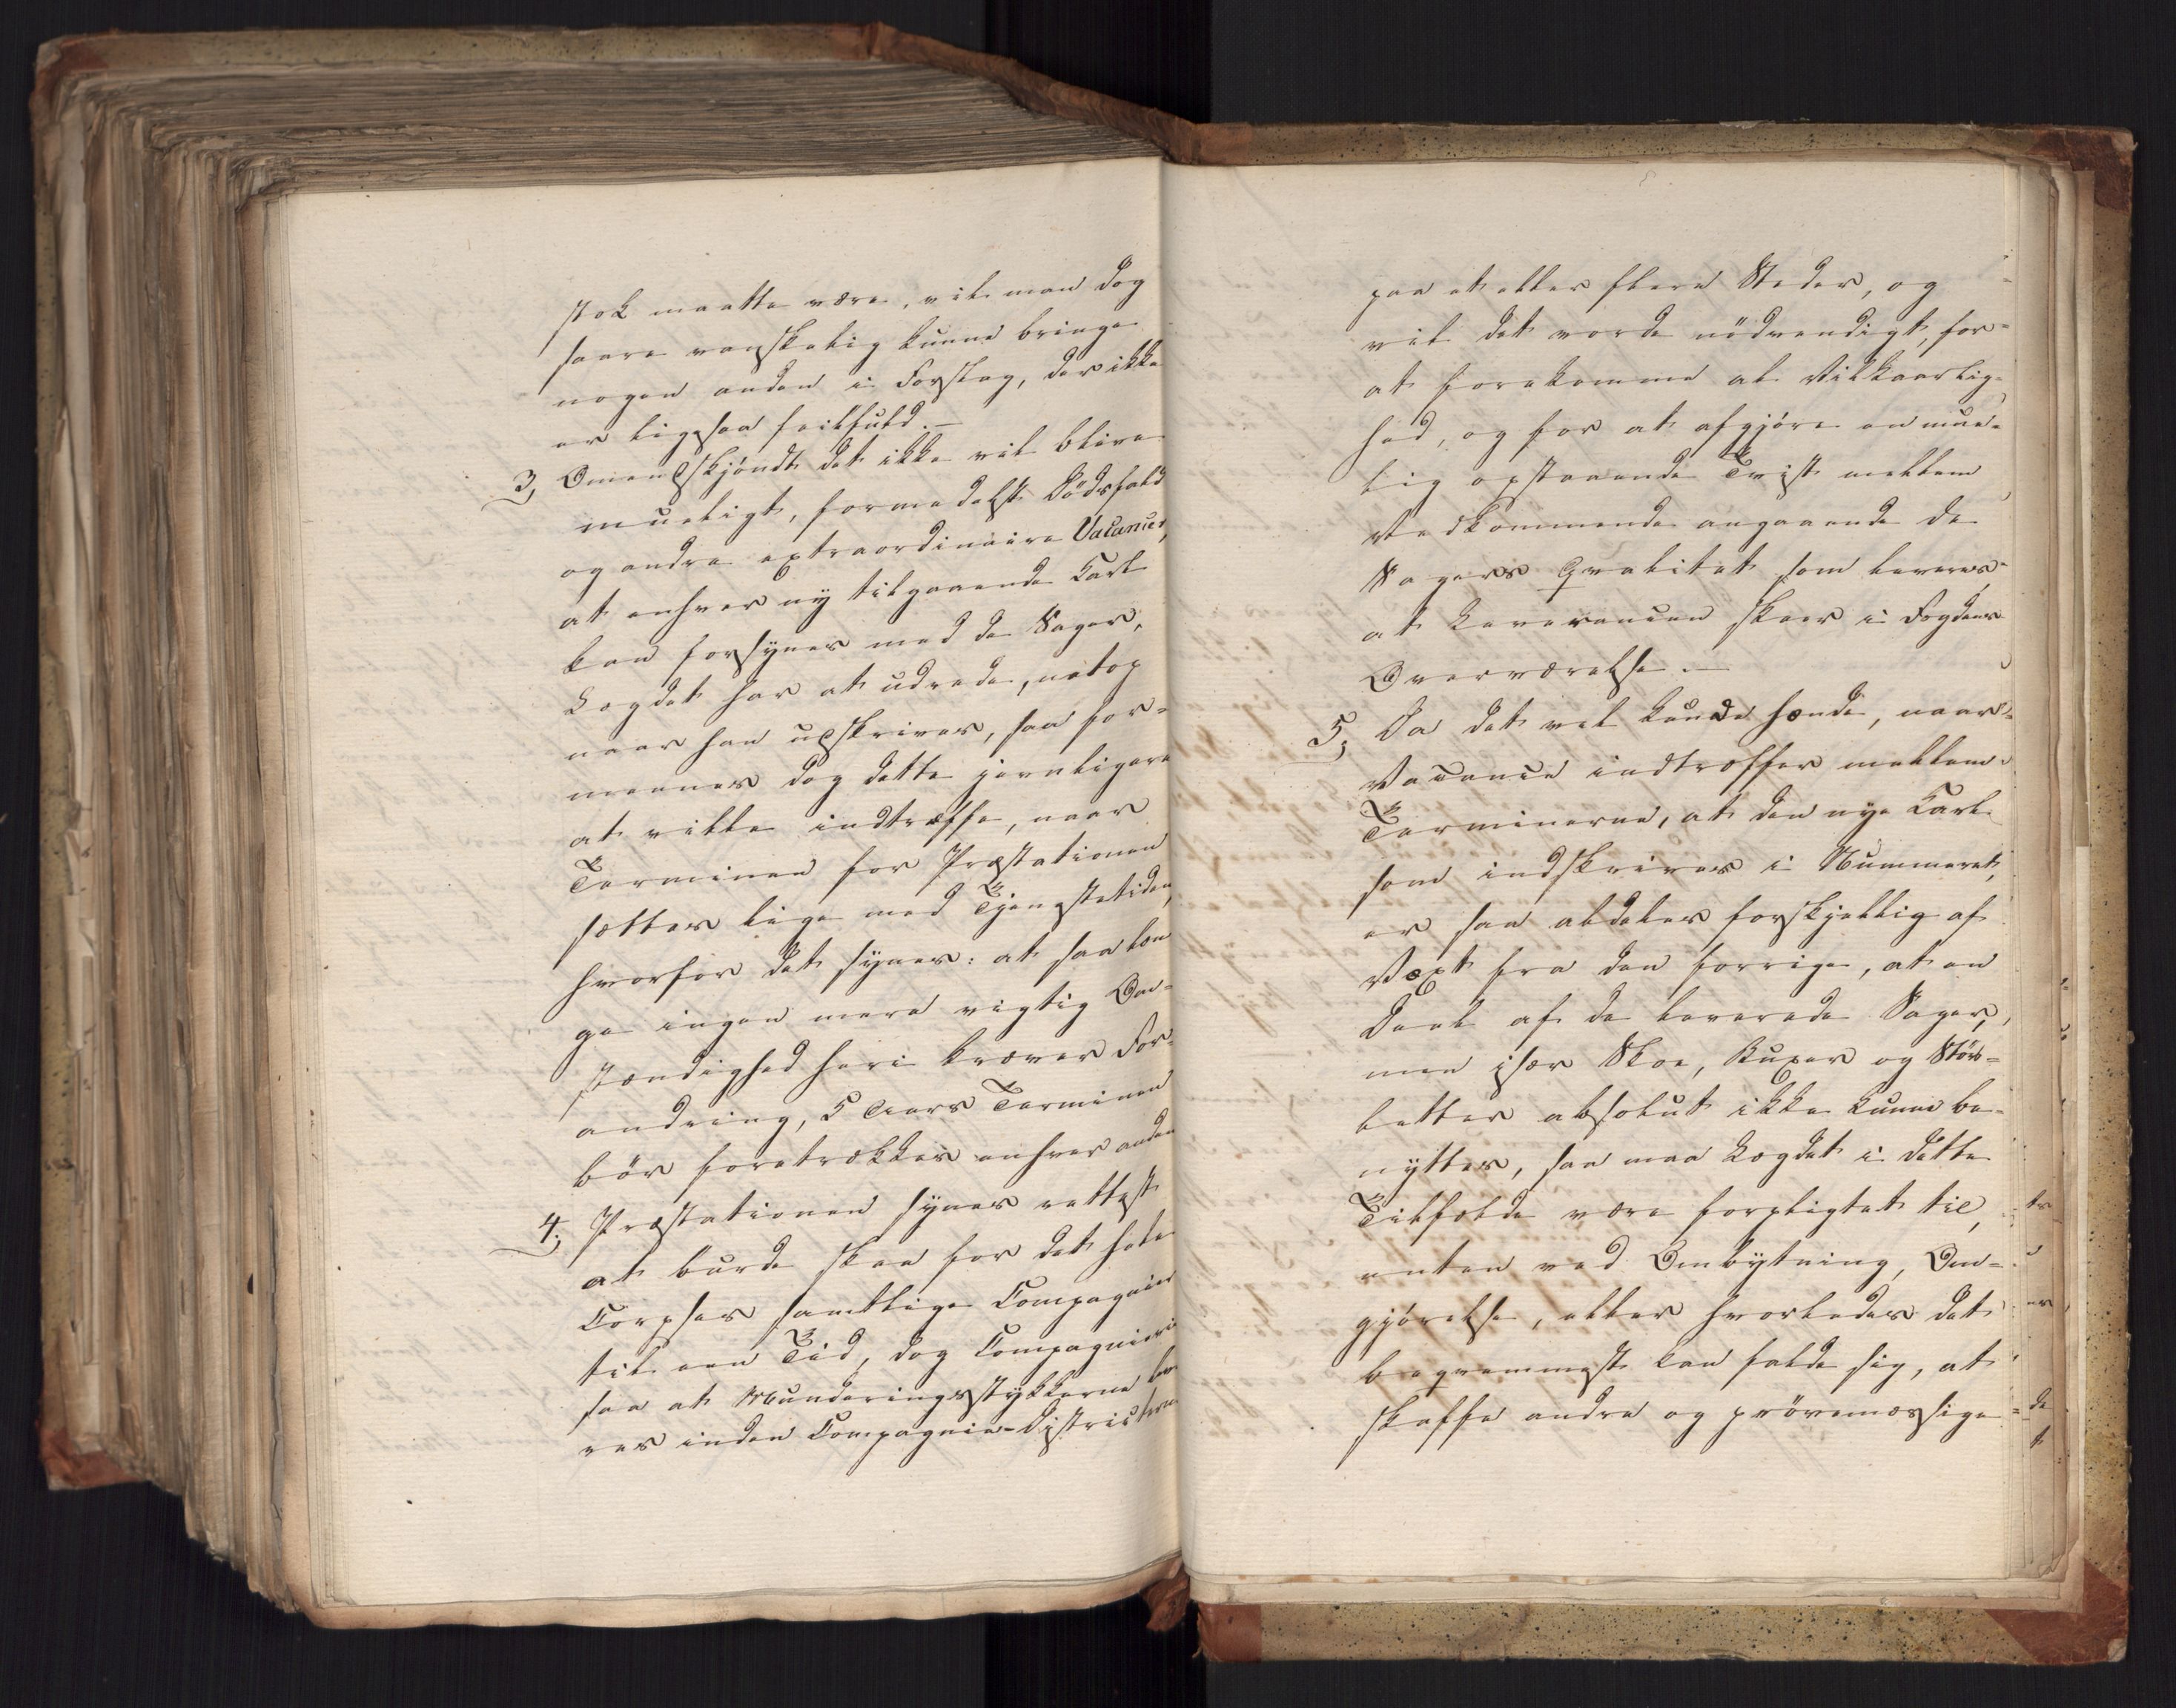 stok maatte være, vil man dog
saare vanskelig kunne bringe
nogen anden i Forslag, der ikke
er ligesaa feilfuld.—
3, Omendskjöndt det ikke vil blive
mueligt, formedelst Dödsfald
og andre extraordinaire Vacancer,
at enhver ny tilgaaende Karl
kan forsynes med de Sager,
Lægdet har at udrede, netop
naar han udskrives, saa for-
meenes dog dette jevnligere
at ville indtræffe, naar
Terminen for Præstationen
sættes lige med Tjenstetiden,
hvorfor det synes: at saa læn
ge ingen mere vigtig Om-
stændighed heri kræver For-
andring, 5 Aars Terminen
bör foretrækkes enhver anden
4, Præstationen synes rettest
at burde skee for det hele
Corpses samtlige Compagnier
til een Tid, dog Compagnieviis
saa at Munderingsstykkerne leve
res inden Compagnie-Districterne
paa et eller flere Steder, og
vil det vorde nödvendigt, for-
at forekomme al Vilkaarlig-
hed, og for at afgjöre en mue-
lig opstaaende Tvist mellem
Vedkommende angaaende de
Sagers Qvalitet som leveres
at Leverancen skeer i Fogdens
Overværelse.—
5, Da det vel kunde hænde, naar
Vacance indtræffer mellem
Terminerne, at den nye Karl
som indskrives i Nummeret,
er saa aldeles forskjellig af
Væxt fra den forrige, at en
Deel af de leverede Sager,
men især Skoe, Buxer og Stöv-
letter absolut ikke kunne be-
nyttes, saa maa Lægdet i dette
Tilfælde være forpligtet til,
enten ved Ombytning, Om-
gjörelse, eller hvorledes det
beqvemmest kan falde sig, at
skaffe andre og prövemæssige